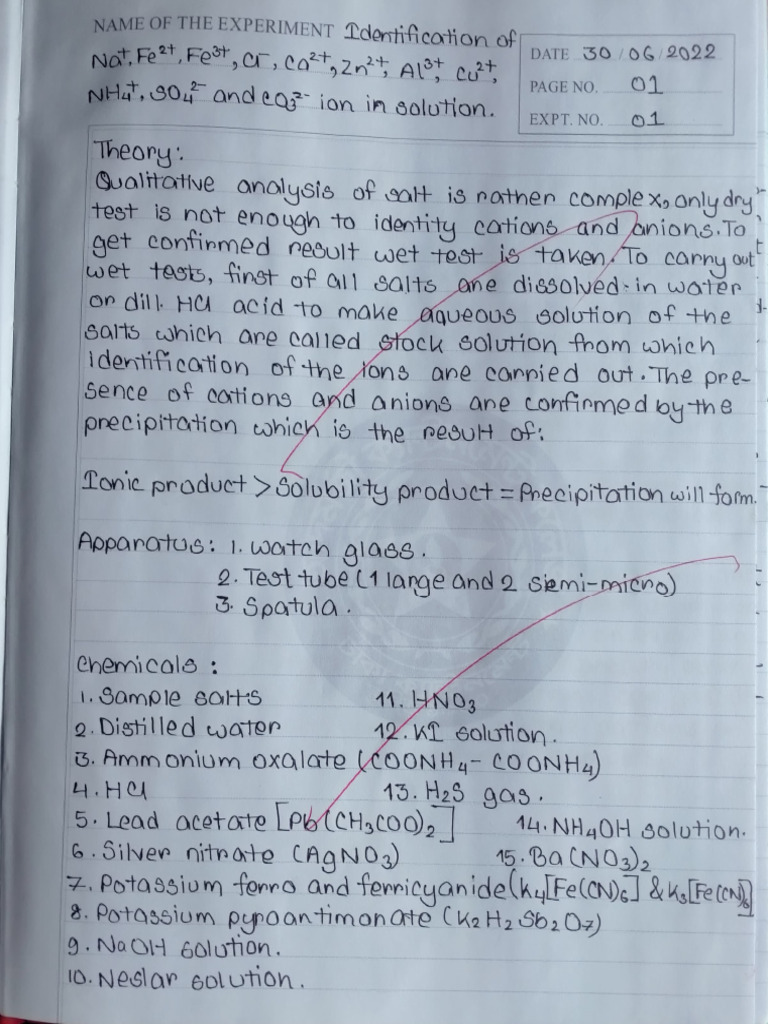 NAME OF THE EXPERIMENT Identification of
Na⁺, Fe²⁺, Fe³⁺, Cl⁻, Ca²⁺, Zn²⁺, Al³⁺, Cu²⁺,
NH₄⁺, SO₄²⁻ and CO₃²⁻ ion in solution.
DATE 30/06/2022
PAGE NO. 01
EXPT. NO. 01
Theory:
Qualitative analysis of salt is rather complex, only dry
test is not enough to identity cations and anions. To
get confirmed result wet test is taken. To carry out
wet tests, first of all salts are dissolved in water
or dill. HCl acid to make aqueous solution of the
salts which are called stock solution from which
identification of the ions are carried out. The pre-
sence of cations and anions are confirmed by the
precipitation which is the result of:
Ionic product > Solubility product = Precipitation will form.
Apparatus: 1. Watch glass.
2. Test tube (1 large and 2 semi-micro)
3. Spatula.
Chemicals:
1. Sample salts 11. HNO₃
2. Distilled water 12. KI solution.
3. Ammonium oxalate (COONH₄- COONH₄)
4. HCl 13. H₂S gas.
5. Lead acetate [Pb(CH₃COO)₂] 14. NH₄OH solution.
6. Silver nitrate (AgNO₃) 15. Ba(NO₃)₂
7. Potassium ferro and ferricyanide (K₄[Fe(CN)₆] & K₃[Fe(CN)₆]
8. Potassium pyroantimonate (K₂H₂Sb₂O₇)
9. NaOH solution.
10. Neslar solution.